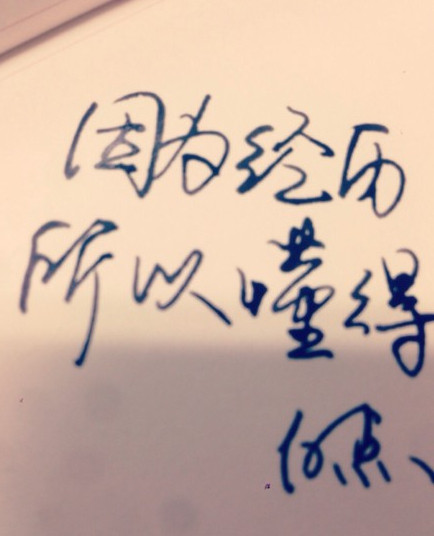 因为经历
所以懂得